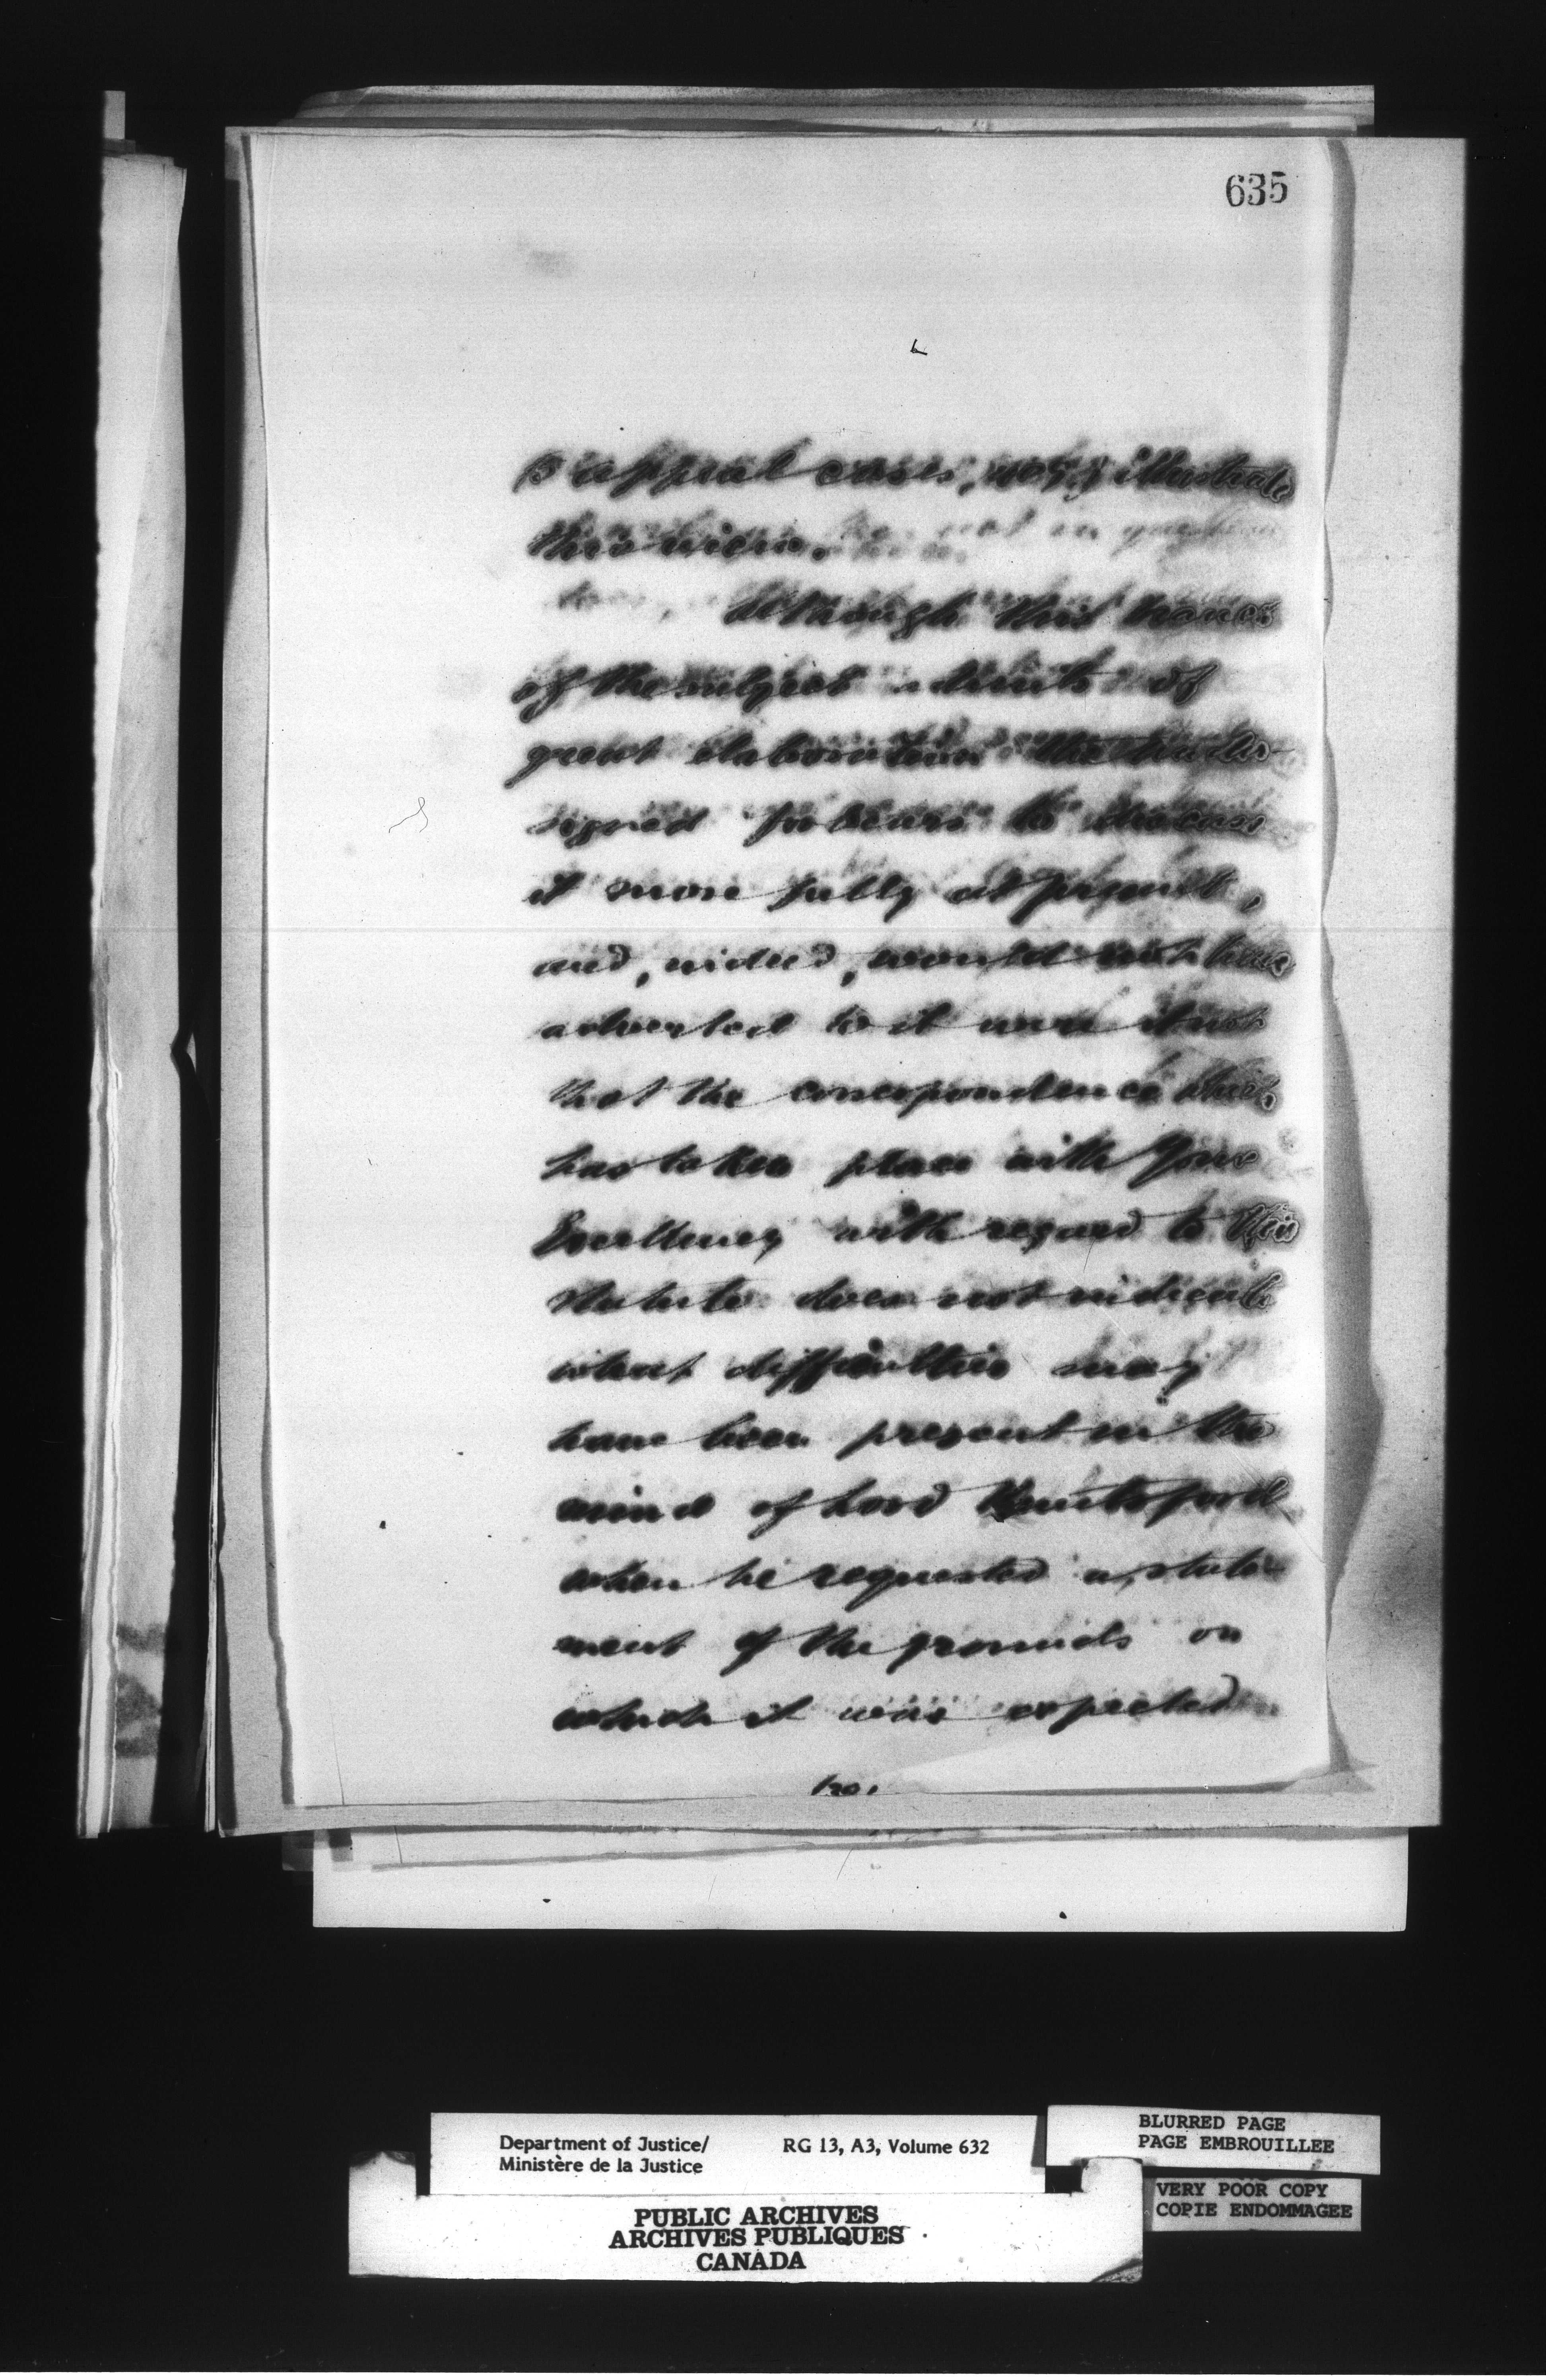 635
appeal cases, illustrate
this view.
Although this branch
of the subject admits of
great elaboration the under-
signed forbears to discuss
it more fully at present,
and, indeed, would not have
adverted to it were it not
that the correspondence which
has taken place with Your
Excellency with regard to this
Statute does not indicate
what difficulties may
have been present in the
mind of Lord Knutsford
when he requested a state-
ment of the grounds on
which it was expected
Department of Justice/
Ministère de la Justice
RG 13, A3, Volume 632
BLURRED PAGE
PAGE EMBROUILLEE
VERY POOR COPY
COPIE ENDOMMAGEE
PUBLIC ARCHIVES
ARCHIVES PUBLIQUES
CANADA